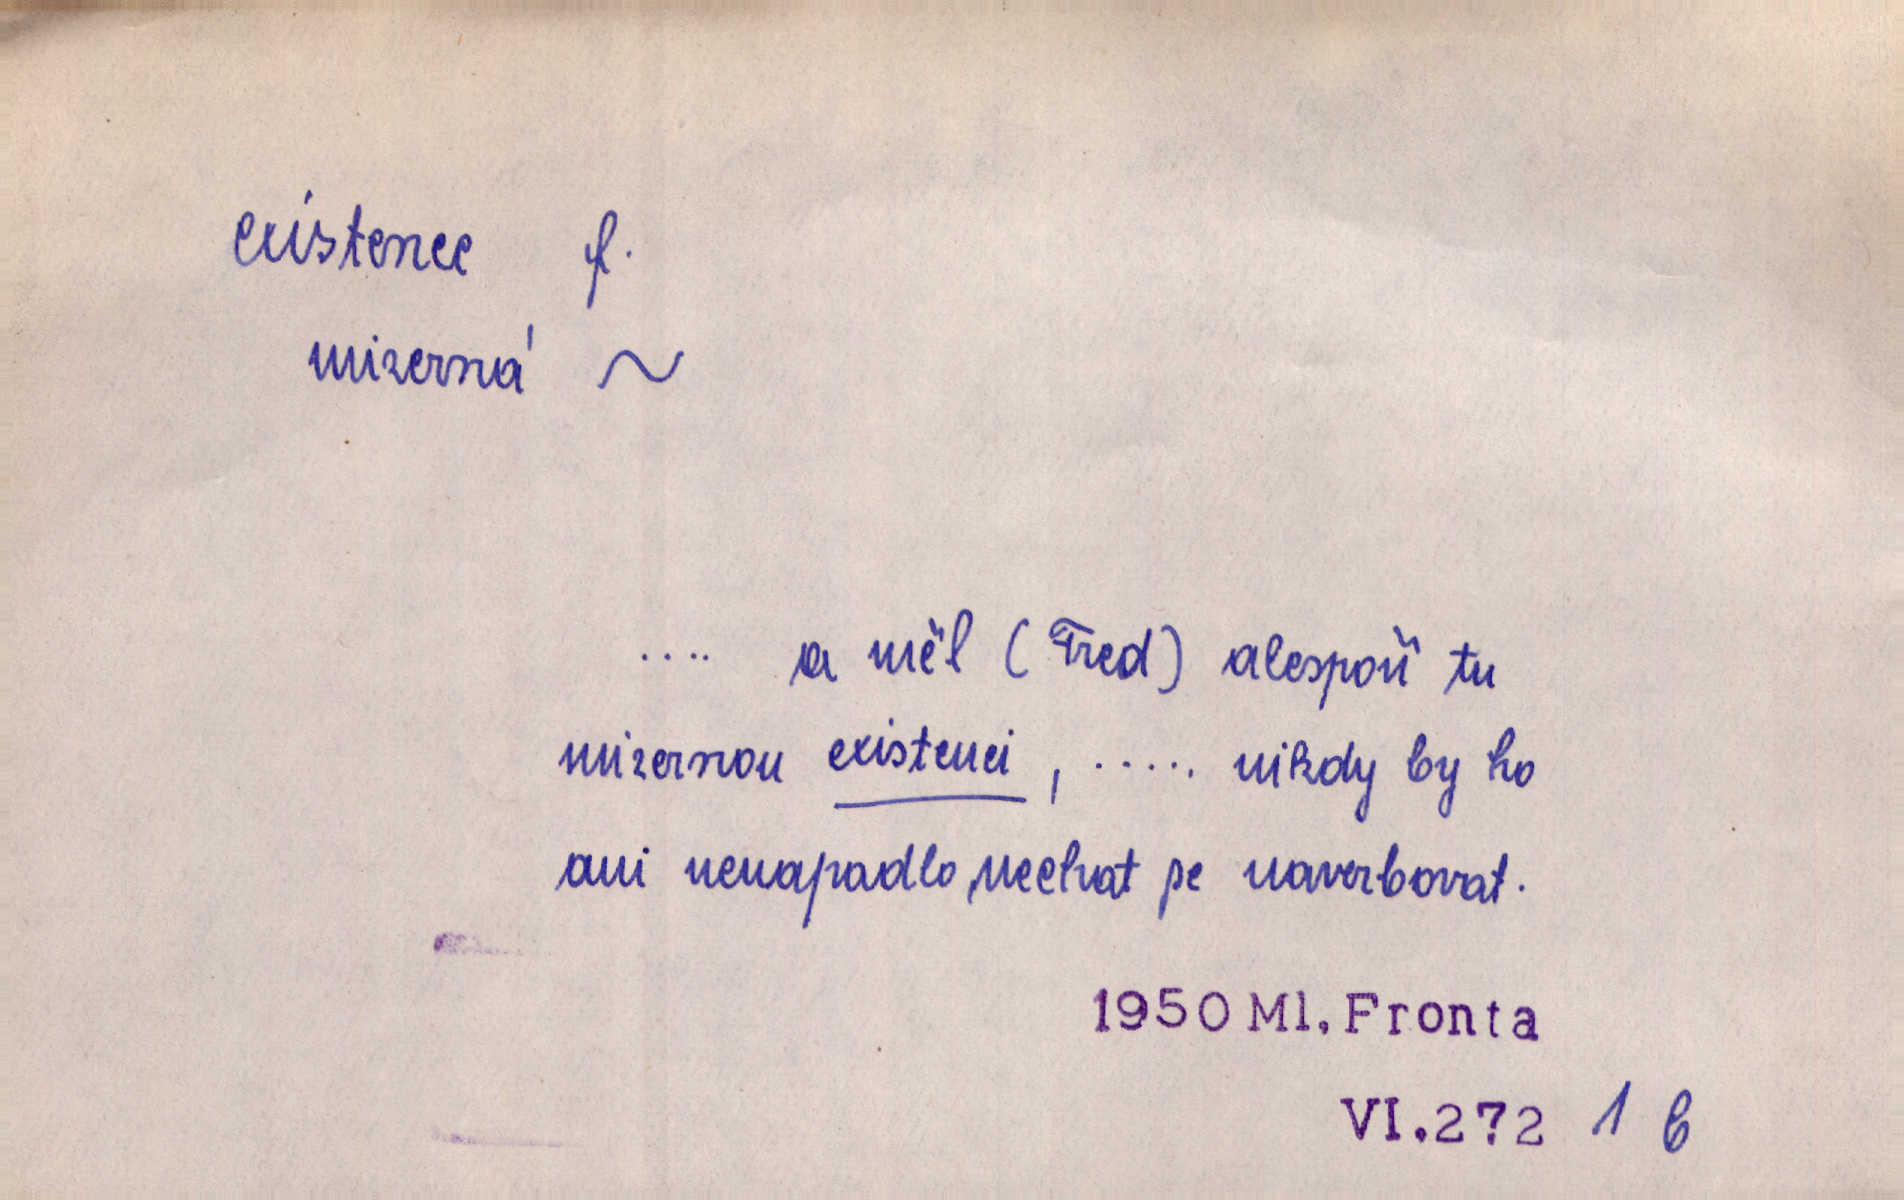 existence f.
mizerná ~
.... a měl (Fred) alespoň tu
mizernou existenci, ..... nikdy by ho
ani nenapadlo, nechat se naverbovat.
1950 Ml. Fronta
VI.272 1 b